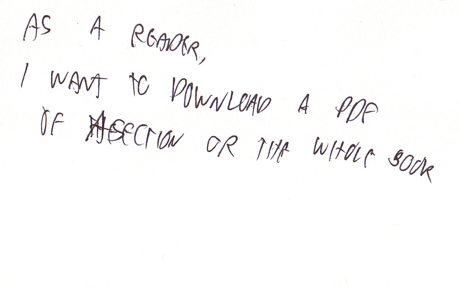 AS A READER,
I WANT TO DOWNLOAD A PDF
OF A SECTION OR THE WHOLE BOOK